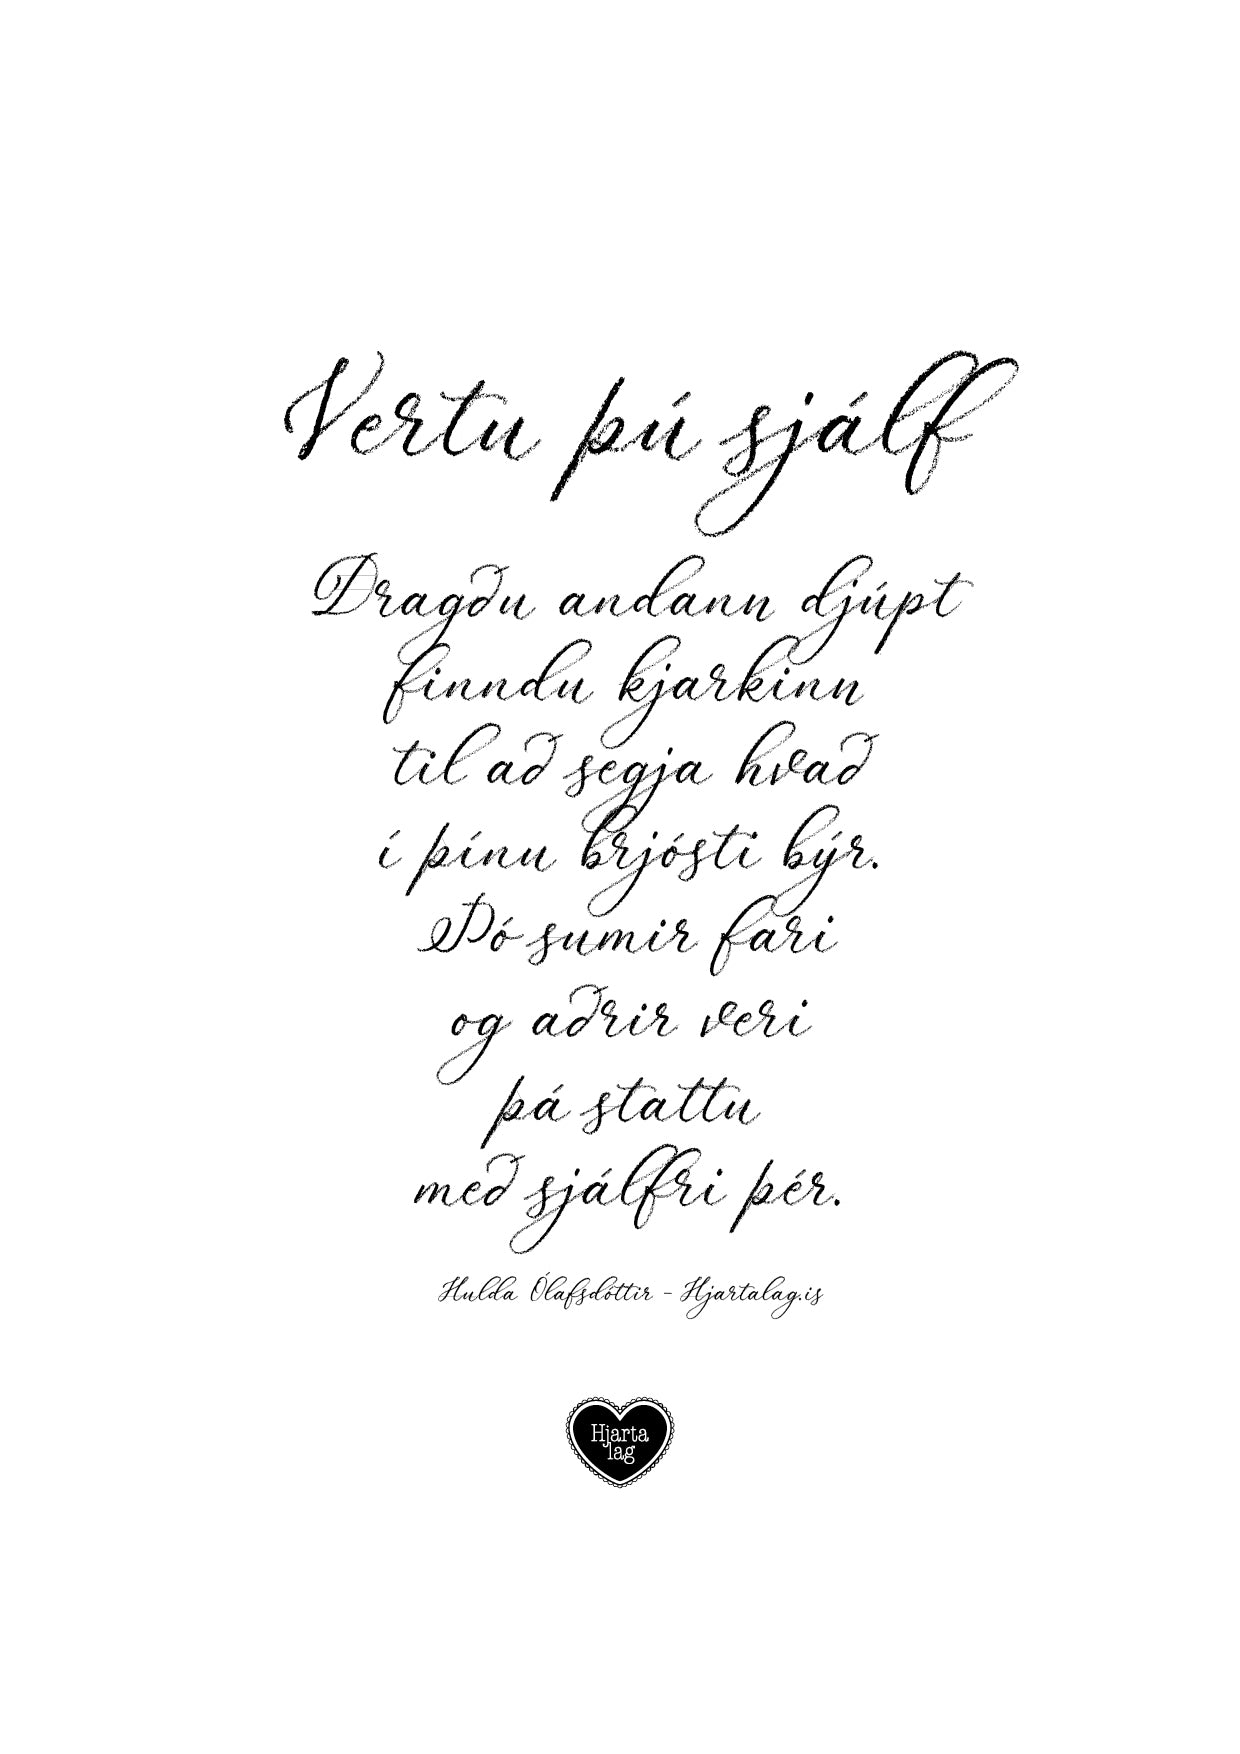 Vertu þú sjálf
Dragðu andann djúpt
finndu kjarkinn
til að segja hvað
í þínu brjósti býr.
Þó sumir fari
og aðrir veri
þá stattu
með sjálfri þér.
Hulda Ólafsdóttir - Hjartalag.is
Hjarta
lag